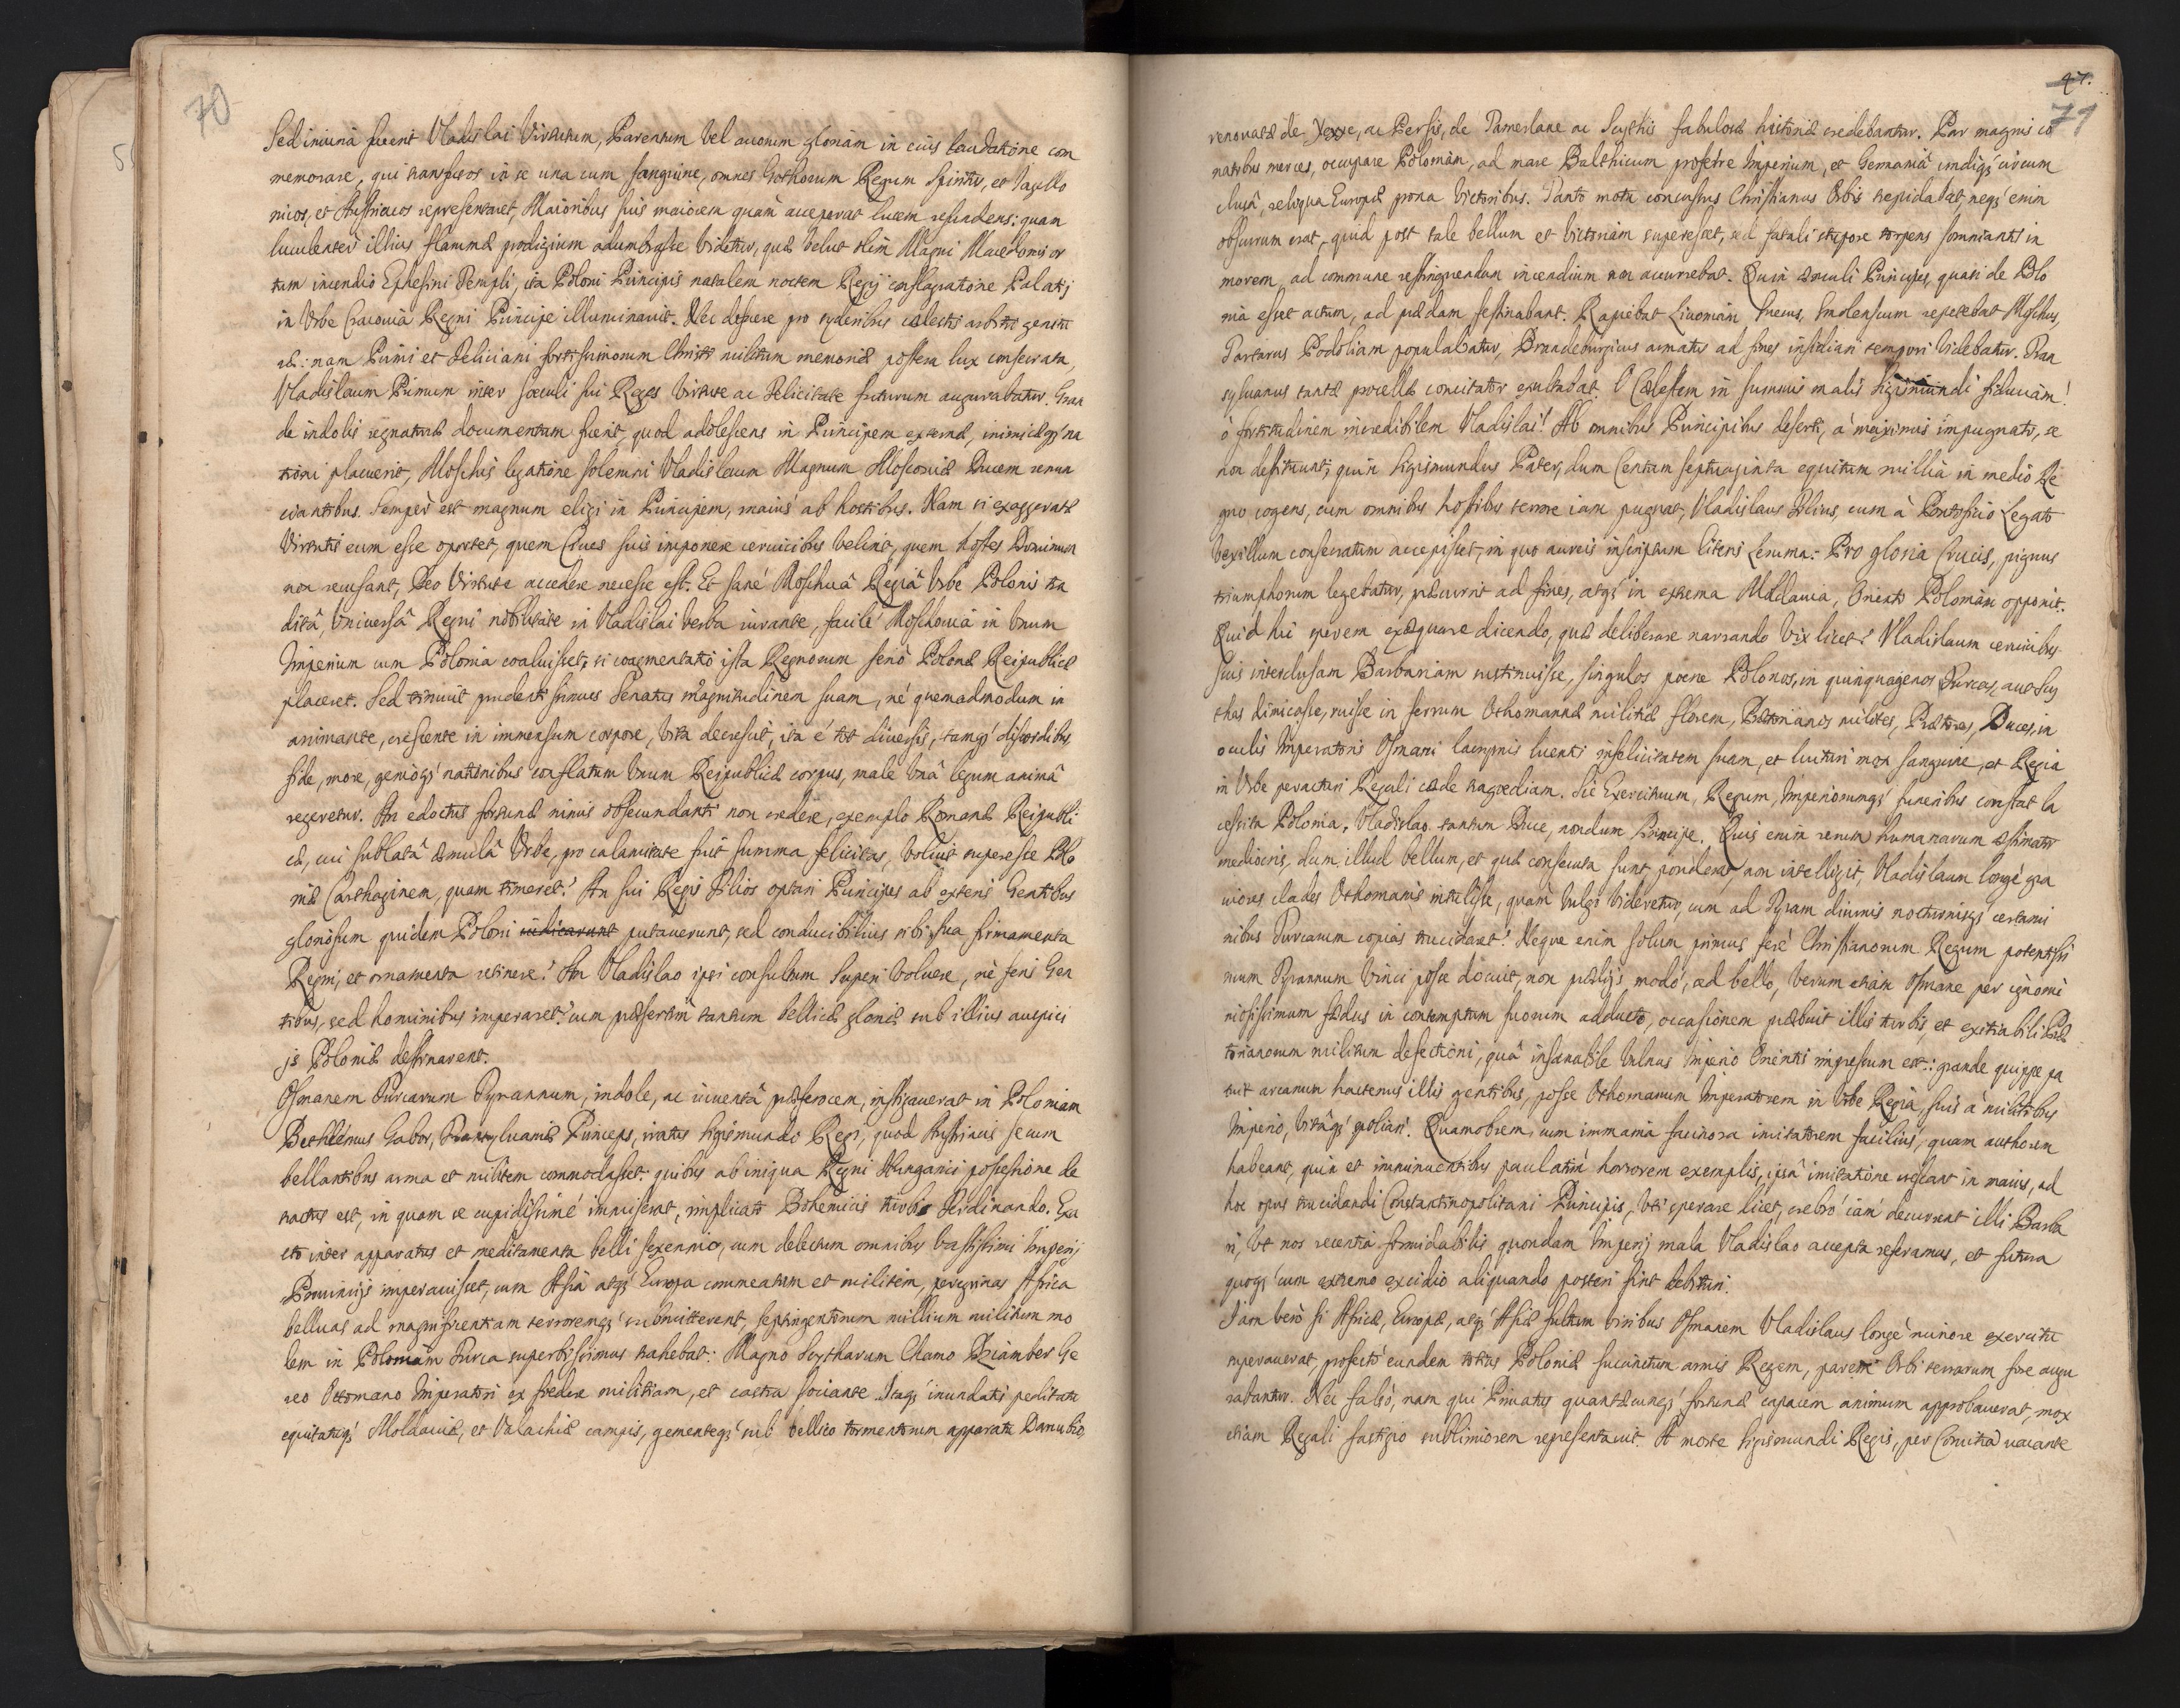 70
Sed iniuriâ fuerit Vladislai Virtutum, Parentum vel auorum gloriam in eius laudatione com
memorare, qui transfusos in se una cum sanguine, omnes Gothorum Regum Spiritus, et Jagello
nicos, et Austriacos representaret, Maioribus suis maiorem quàm acceperat lucem refundens: quam
luculenter illius flammæ prodigium adumbrasse videtur, quæ velut olim Magni Macedonis or
tum incendio Ephesini Templi, ita Poloni Principis natalem noctem Regij conflagratione Palatij
in Urbe Cracouiâ Regni Principe illuminauit. Nec defuere pro syderibus cælestis
nam Primi et Feliciani fortissimorum Christi militum memoriæ postera lux consecrata,
Vladislaum Primum inter sæculi sui Reges virtute ac Felicitate futurum augurabatur. Gran
de indolis regnaturæ documentum fuerit, quod adolescens in Principem externæ, inimicæq; na
tioni placuerit, Moschis legatione solemni Vladislaum Magnum Moscouiæ Ducem renun
ciantibus. Semper est magnum eligi in Principem, maius ab hostibus. Nam si exaggeratæ
virtutis eum esse oportet, quem Ciues suis imponere ceruicibus velint, quem hostes Dominum
non recusant, Deo virtute accedere necesse est. Et sanè Moschuâ Regiâ Urbe Polonis tra
ditâ, vniuersâ Regni nobilitate in Vladislai verba iurante, facilè Moschouia in vnum
Imperium cum Polonia coaluisset, si coagmentatio ista Regnorum seriò Polonæ Reipublicæ
placeret. Sed timuit prudentissimus Senatus magnitudinem suam, nè quemadmodum in
animante, crescente in immensum corpore, vita decrescit, ita è tot diuersis, tamq; discordibus
fide, more, genioq; nationibus conflatum vnum Reipublicæ corpus, male vnâ legum animâ
regeretur. An edoctus fortunæ nimis obsecundanti non credere, exemplo Romanæ Reipubli
cæ, cui sublatâ æmulâ Urbe, pro calamitate fuit summa felicitas, voluit superesse Polo
niæ Carthaginem, quam timeret? An sui Regis Filios optari Principes ab exteris Gentibus
gloriosum quidem Poloni iudicarunt putauerunt, sed conducibilius sibi sua firmamenta
Regni, et ornamenta retinere? An Vladislao ipsi consultum Superi voluere, nè feris Gen
tibus, sed hominibus imperaret? cum præsertim tantum bellicæ gloriæ sub illius auspici
js Poloniæ destinarent.
Osmanem Turcarum Tyrannum, indole, ac iuuentâ præferocem, instigauerat in Poloniam
Bethlemus Gabor, Transyluaniæ Princeps, iratus Sigismundo Regi, quod Austriacis secum
bellantibus arma et militem commodasset: quibus ab iniqua Regni Hungarici possessione de
tractus est, in quam se cupidissimè immiserat, implicato Bohemicis turbis Ferdinando. Exa
cto inter apparatus et meditamenta belli sexennio, cum delectum omnibus vastissimi Imperij
Prouincijs imperauisset, cum Asia atq; Europa commeatum et militem, peregrinas Africa
belluas ad magnificentiam terroremq; submitterent, septingentorum millium militum mo
lem in Poloniam Turca superbissimus trahebat: Magno Scytharum Chamo Dziamber Ge
reo Ottomano Imperatori ex foedere militiam, et castra sociante. Itaq; inundatis peditatu
equitatuq; Moldauiæ, et Valachiæ campis, gementeq; sub bellico tormentorum apparatu Danubio,
47.
71
renouatæ de Xerxe, ac Persis, de Tamerlane ac Scythis fabulosæ historiæ credebantur. Par magnis co
natibus merces, occupare Poloniam, ad mare Balthicum proferre Imperium, et Germaniâ undiq; circum
clusâ, reliqua Europæ prona victoribus. Tanto motu concussus Christianus Orbis trepidabat, neq; enim
obscurum erat, quid post tale bellum et victoriam superesset, sed fatali stupore torpens somniantis in
morem, ad commune restinguendum incendium non accurrebat. Quin æmuli Principes, quasi de Polo
nia esset actum, ad prædam festinabant. Rapiebat Liuoniam Suecus, Smolenscum repetebat Moschus,
Tartarus Podoliam populabatur, Brandeburgicus armatus ad fines insidiari tempori videbatur. Tran
syluanus tantæ procellæ concitator exultabat. O Cælestem in summis malis Sigismundi fiduciam!
ò fortitudinem incredibilem Vladislai! Ab omnibus Principibus deserti, à maximis impugnati, se
non destituunt, quin Sigismundus Pater, dum Centum septuaginta equitum millia in medio Re
gno cogens, cum omnibus hostibus terrore iam pugnat, Vladislaus Filius, cum à Pontificio Legato
vexillum consecratum accepisset, in quo aureis inscriptum literis Lemma: Pro gloria Crucis, pignus
triumphorum legebatur, præcurrit ad fines, atq; in extrema Moldauia, Orienti Poloniam opponit.
Quid hic sperem exæquare dicendo, quæ deliberare narrando vix licet? Vladislaum ceruicibus
suis interclusam Barbariam sustinuisse, singulos poene Polonos, in quinquagenos Turcas, aut Scy
thas dimicasse, ruisse in ferrum Othomannæ militiæ florem, Prætorianos milites, Prætores, Duces, in
oculis Imperatoris Osmani lacrymis luentis infelicitatem suam, et luituri mox sanguine, et Regia
in Urbe peracturi Regali cæde tragoediam. Sic Exercituum, Regum, Imperiorumq; funeribus constat la
cessita Polonia, Vladislao tantum Duce, nondum Principe. Quis enim rerum humanarum æstimator
mediocris, dum illud bellum, et quæ consecuta sunt, ponderat, non intelligit, Vladislaum longè gra
uiores clades Othomanis intulisse, quàm vulgò videretur, cum ad Tyram diurnis nocturnisq; certami
nibus Turcarum copias trucidaret? Neque enim solum primus ferè Christianorum Regum potentissi
mum Tyrannum vinci posse docuit, non prælijs modò, sed bello, verum etiam Osmane per ignomi
niosissimum foedus in contemptum suorum adducto, occasionem præbuit illis turbis, et exitiabili Præ
torianorum militum defectioni, quâ insanabile vulnus Imperio Orientis impressum est: grande quippe pa
tuit arcanum hactenus illis gentibus, posse Othomanum Imperatorem in Urbe Regia, suis à militibus
Imperio, vitâq; spoliari. Quamobrem, cum immania facinora imitatorem facilius, quam authorem
habeant, quin et imminuentibus paulatim horrorem exemplis, ipsâ imitatione crescant in maius, ad
hoc opus trucidandi Constantinopolitani Principis, vti sperare licet, crebrò iam decurrent illi Barba
ri, vt nos recentia formidabilis quondam Imperij mala Vladislao accepta referamus, et futura
quoq; cum extremo excidio aliquando posteri sint debituri.
Iam verò si Africæ, Europæ, atq; Asiæ fultum viribus Osmanem Vladislaus longè minore exercitu
superauerat, profectò eundem totius Poloniæ succinctum armis Regem, parem Orbi terrarum fore augu
rabantur. Nec falsò, nam qui Priuatus quantæcunq; fortunæ capacem animum approbauerat, mox
etiam Regali fastigio sublimiorem representauit. A morte Sigismundi Regis, per Comitia vacante